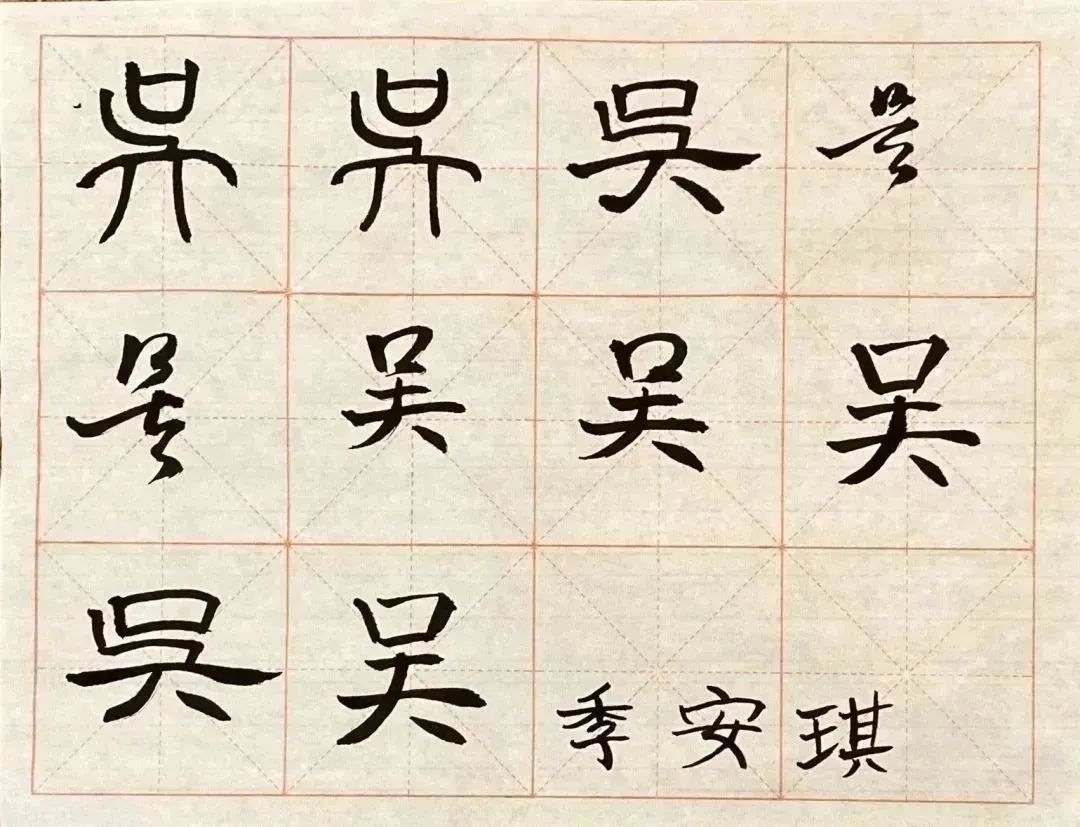 吳 吳 吳 吴
吴 吴 吴 吴
吳 吴 季安琪